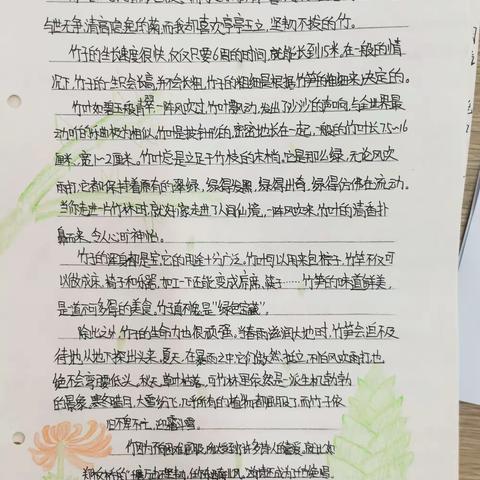 与世无争,清高隐逸的菊,而我却喜欢亭亭玉立,坚韧不拔的竹。
竹子的生长速度很快,仅仅只要6周的时间,就能长到15米,在一般的情
况下,竹子的生只会长高,并不会长粗,竹子的粗细是根据竹笋的粗细来决定的。
竹叶如碧玉般青翠,一阵风吹过,竹叶飘动,发出了沙沙的声响,与全世界最
动听的极为相似。竹叶是披针形的,密密地长在一起,一般的竹叶长7.5~16
厘米,宽1~2厘米。竹叶总是立足于竹枝的末梢。它是那么绿,无论风吹
雨打,它都保持着原有的翠绿,绿得发黑,绿得出奇,绿得仿佛在流动。
当你走进一片竹林时,就好像走进了人间仙境,一阵风吹来,竹叶的清香扑
鼻而来,令人心旷神怡。
竹子的浑身都是宝,它的用途十分广泛。竹叶可以用来包粽子,竹竿不仅可
以做成床、椅子和乐器,加工一下还能变成凉席、筷子……竹笋的味道鲜美,
是一道不可多得的美食,竹子真不愧是“绿色宝藏”。
除此之外,竹子的生命力也很顽强。当春雨滋润大地时,竹笋会迫不及
待地从地下探出头来。夏天,在暴雨之中它们傲然挺立,不怕风吹雨打,也
绝不会弯腰低头。秋天,草叶枯落,可竹林里依然是一派生机勃勃
的景象。寒冬腊月,大雪纷飞,几乎所有的植物都屈服了,而竹子依
旧不卑不亢,迎霜斗雪。
竹因为不屈不,也受到许多诗人的喜爱,就比如
郑板桥的